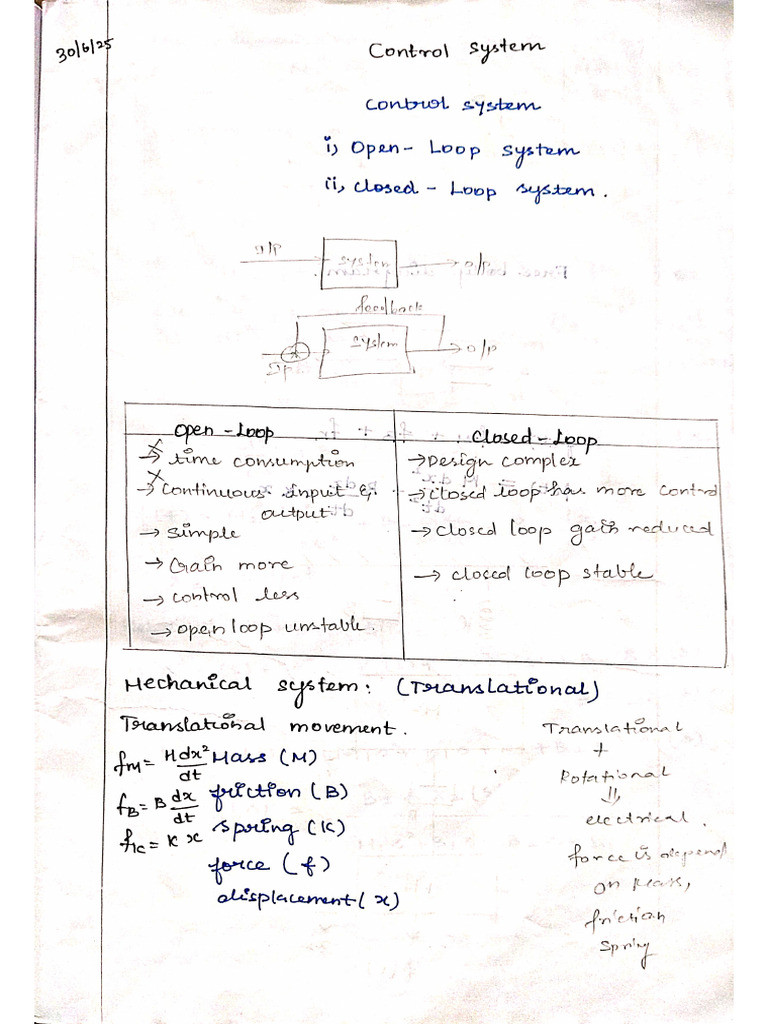 30/6/25
Control system
Control system
i, Open - Loop system
ii, Closed - Loop system.
I/P
system
o/p
feedback
system
o/p
Ip
Open - Loop
Closed - Loop
→ time consumption
→ Continuous input &
output
→ simple
→ Gain more
→ control less
→ open loop unstable.
→ Design complex
→ closed loop has more control
→ closed loop gain reduced
→ closed loop stable
Mechanical system: (Translational)
Translational movement.
fM = M dx²/dt Mass (M)
fB = B dx/dt friction (B)
fK = K x spring (K)
force (f)
displacement (x)
Translational
+
Rotational
⇓
electrical.
force is depend
on Mass,
friction
spring